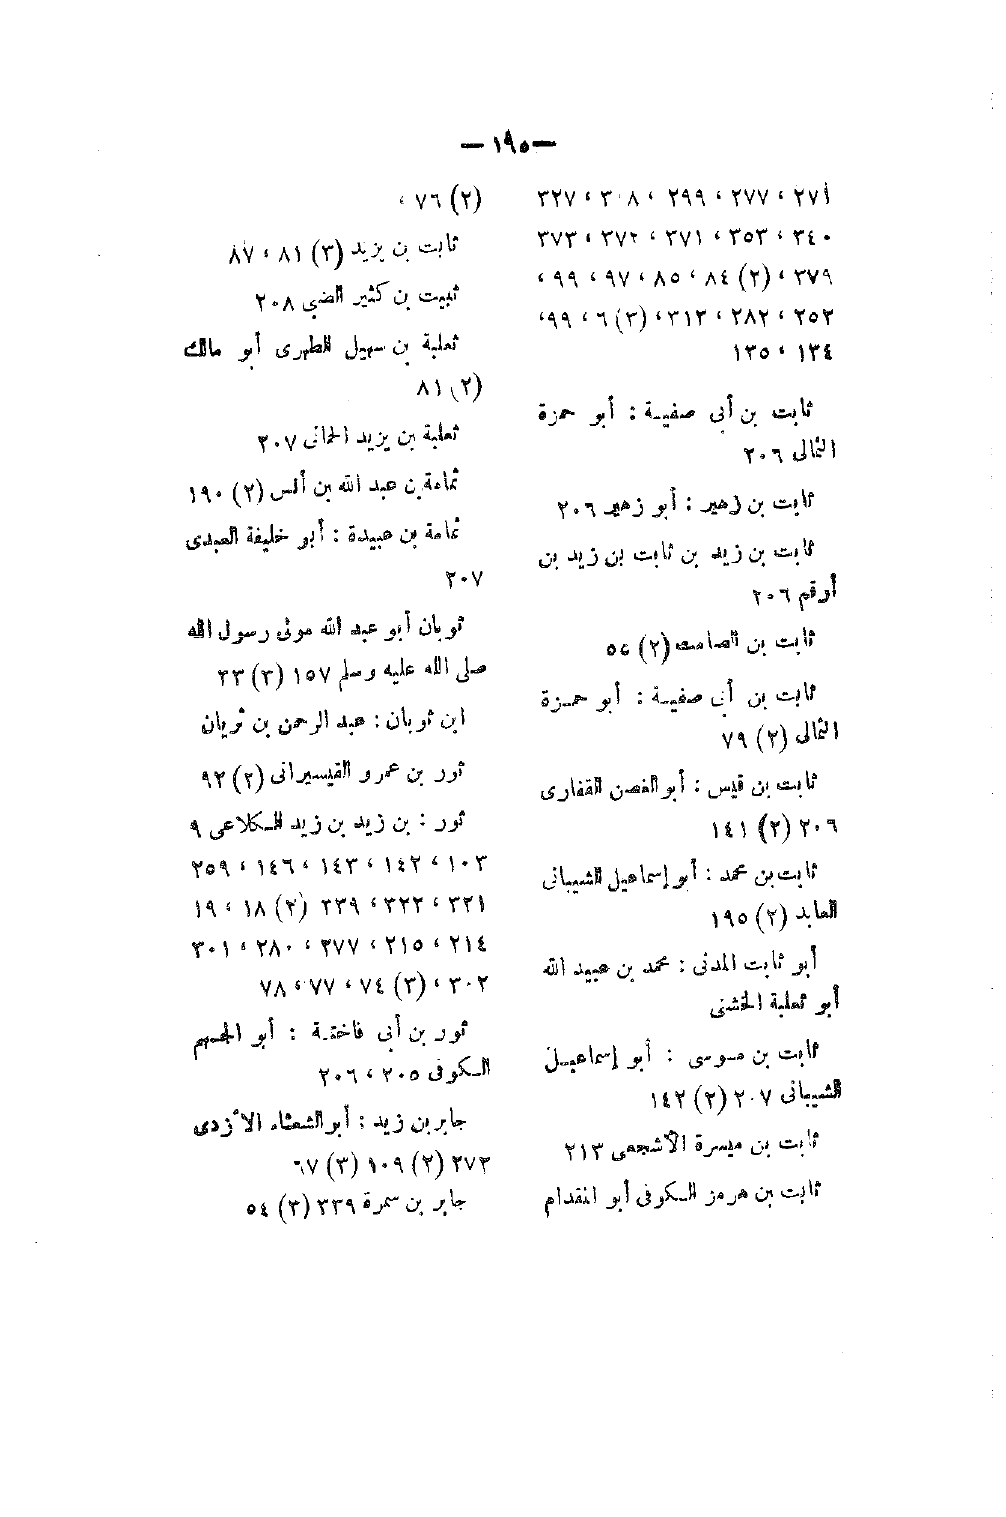 — ١٩٥ —
٢٧١ ، ٢٧٧ ، ٢٩٩ ، ٣٠٨ ، ٣٢٧
٣٤٠ ، ٣٥٣ ، ٣٧١ ، ٣٧٢ ، ٣٧٣
٣٧٩ ، (٢) ٨٤ ، ٨٥ ، ٩٧ ، ٩٩ ،
٢٥٢ ، ٢٨٢ ، ٣١٣ ، (٣) ٦ ، ٩٩ ،
١٣٤ ، ١٣٥
ثابت بن أبى صفية : أبو حمزة
الثمالى ٢٠٦
ثابت بن زهير : أبو زهير ٢٠٦
ثابت بن زيد بن ثابت بن زيد بن
أرقم ٢٠٦
ثابت بن الصامت (٢) ٥٥
ثابت بن أبى صفية : أبو حمزة
الثمالى (٢) ٧٩
ثابت بن قيس : أبو الغصن الغفارى
٢٠٦ (٢) ١٤١
ثابت بن محمد : أبو إسماعيل الشيبانى
العابد (٢) ١٩٥
أبو ثابت المدنى : محمد بن عبيد الله
أبو ثعلبة الخشنى
ثابت بن موسى : أبو إسماعيل
الشيبانى ٢٠٧ (٢) ١٤٢
ثابت بن ميسرة الأشجعى ٢١٣
ثابت بن هرمز الكوفى أبو المقدام
(٢) ٧٦ ،
ثابت بن يزيد (٣) ٨١ ، ٨٧
ثبيت بن كثير الضبى ٢٠٨
ثعلبة بن سهيل الطهرى أبو مالك
(٢) ٨١
ثعلبة بن يزيد الحمانى ٢٠٧
ثمامة بن عبد الله بن أنس (٢) ١٩٠
ثمامة بن عبيدة : أبو خليفة العبدى
٢٠٧
ثوبان أبو عبد الله مولى رسول الله
صلى الله عليه وسلم ١٥٧ (٣) ٣٣
ابن ثوبان : عبد الرحمن بن ثوبان
ثور بن عمرو القيسيرانى (٢) ٩٢
ثور : بن زيد بن زيد الكلاعى ٩
١٠٣ ، ١٤٢ ، ١٤٣ ، ١٤٦ ، ٢٥٩
٣٢١ ، ٣٢٢ ، ٣٣٩ (٢) ١٨ ، ١٩
٢١٤ ، ٢١٥ ، ٢٧٧ ، ٢٨٠ ، ٣٠١
٣٠٢ ، (٣) ٧٤ ، ٧٧ ، ٧٨
ثور بن أبى فاختة : أبو الجهم
الكوفى ٢٠٥ ، ٢٠٦
جابر بن زيد : أبو الشعثاء الأزدى
٢٧٢ (٢) ١٠٩ (٣) ٦٧
جابر بن سمرة ٣٣٩ (٣) ٥٤